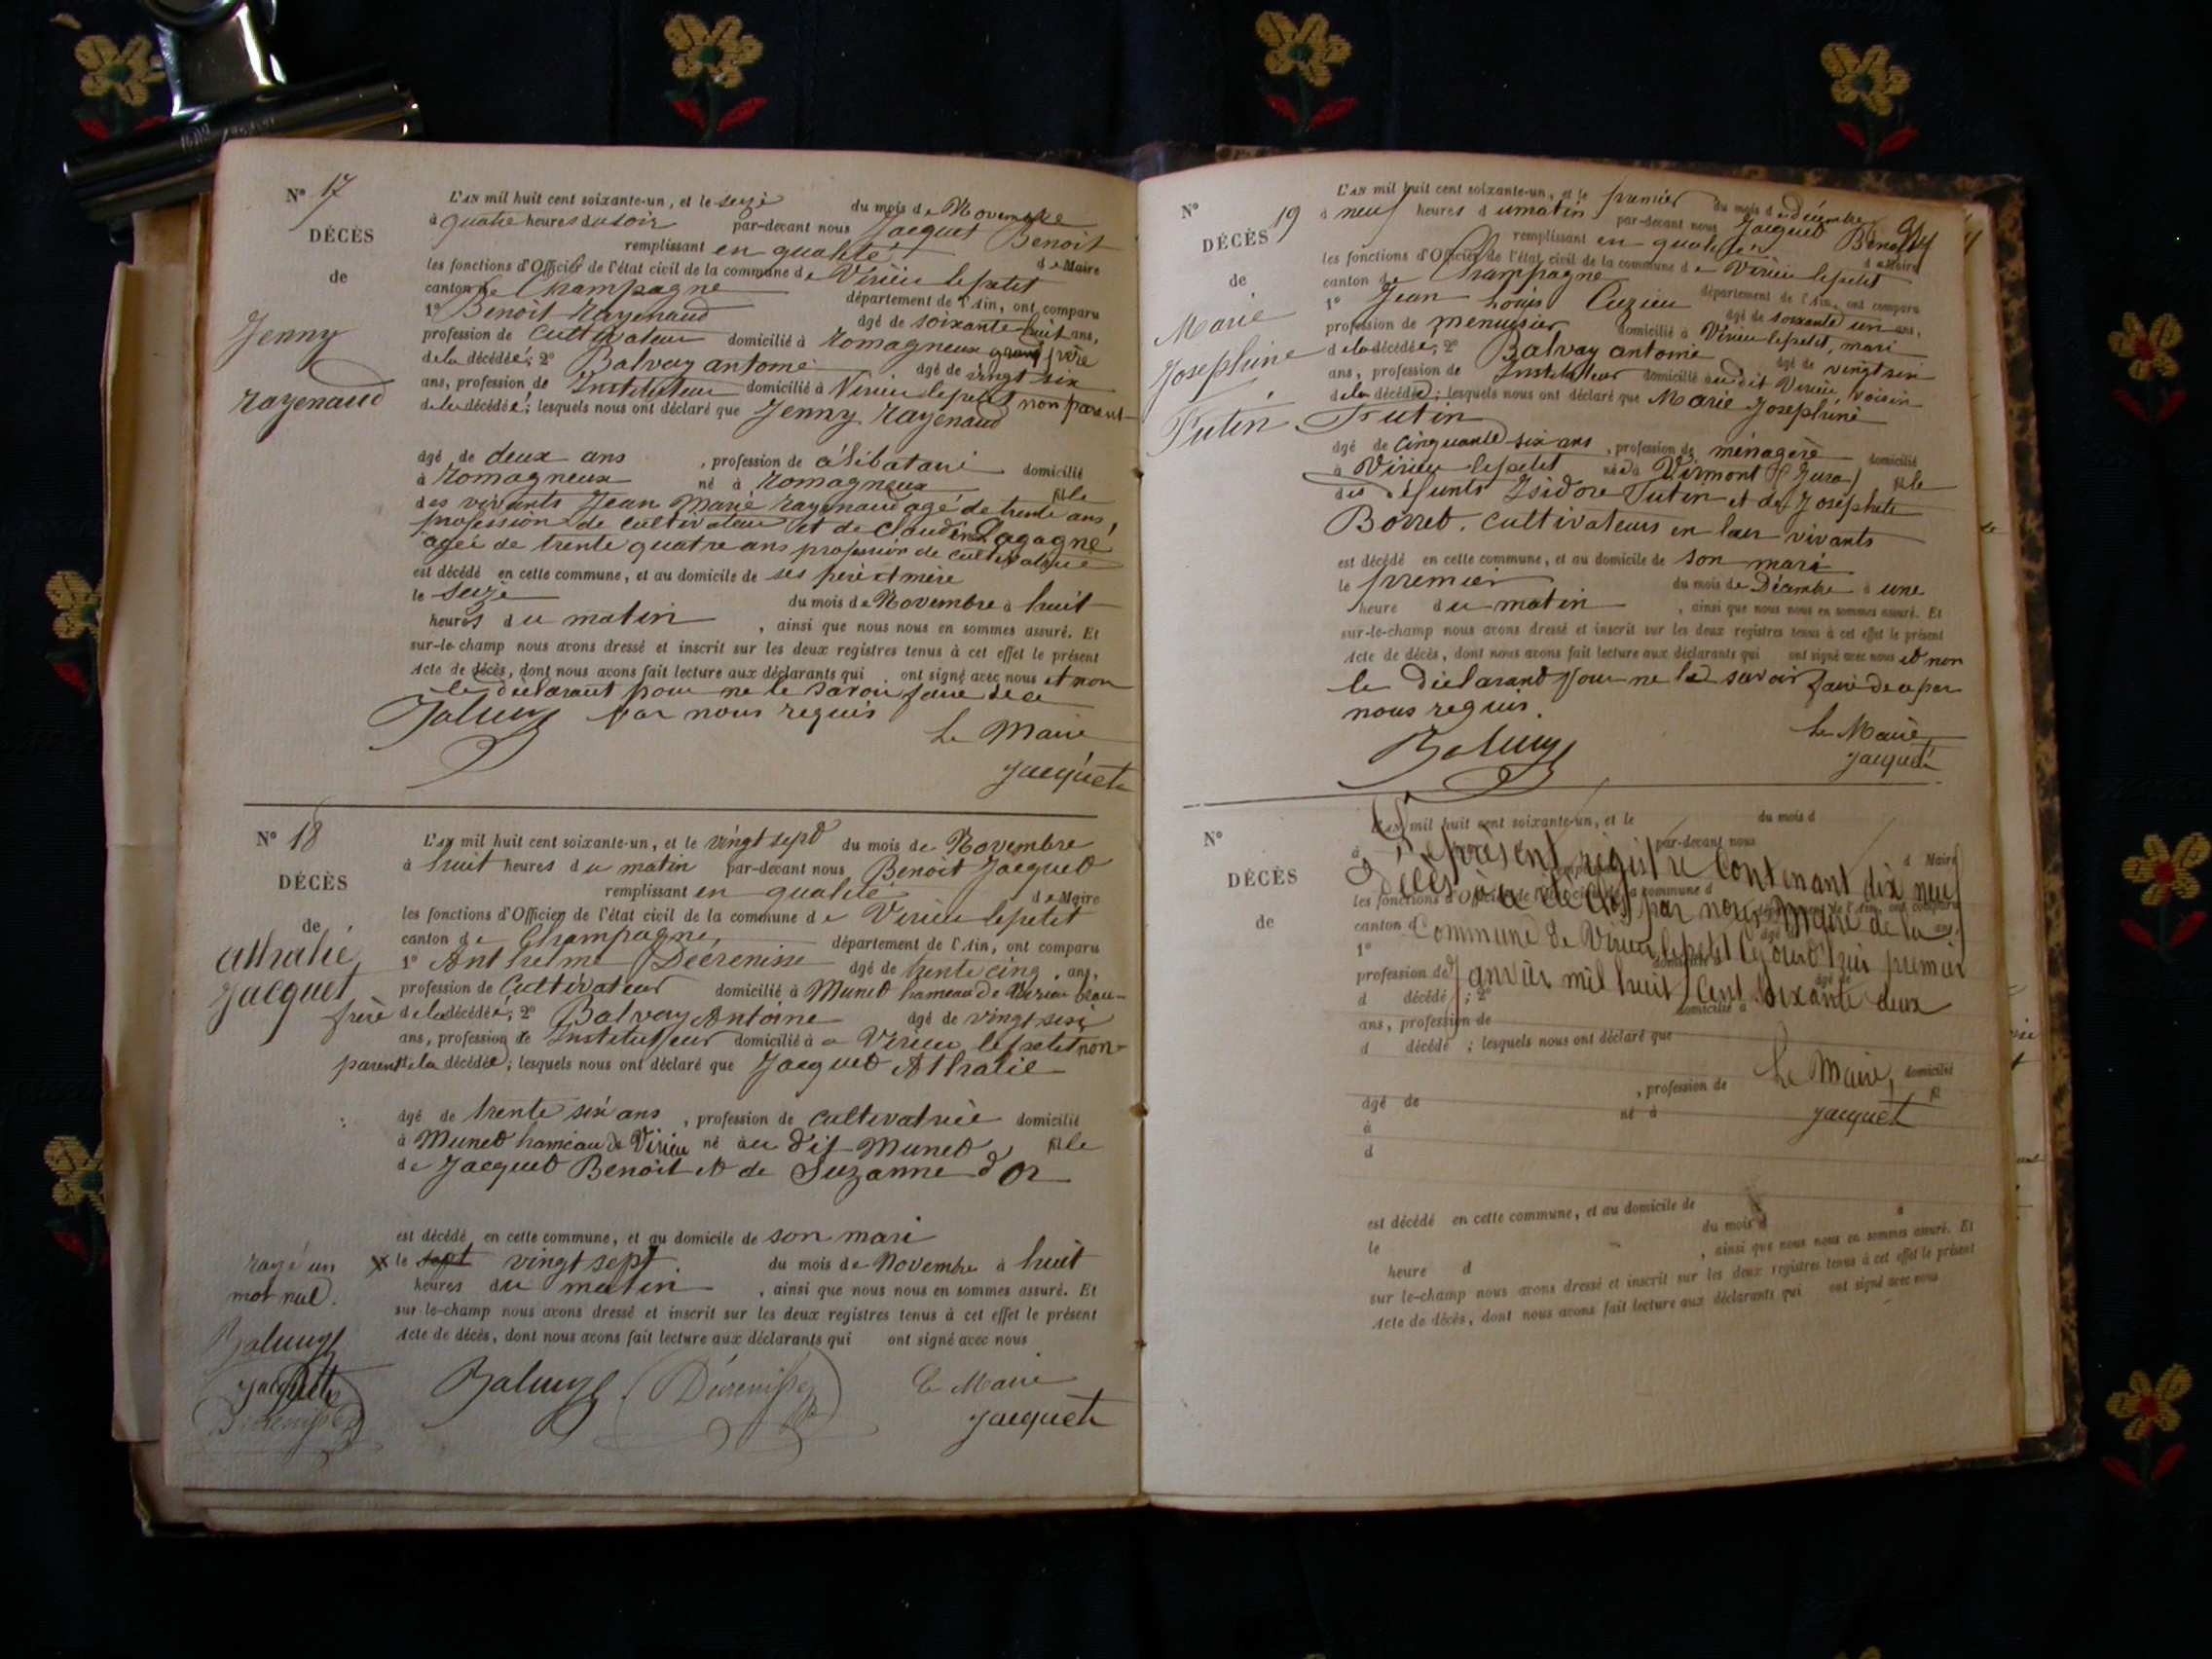 N° 17
DÉCÈS
de
Jenny
Rayenaud
L'AN mil huit cent soixante-un, et le seize du mois de Novembre
à quatre heures du soir par-devant nous Jacquet Benoit
remplissant en qualité de Maire
les fonctions d'Officier de l'état civil de la commune de Virieu lepetit
canton de Champagne département de l'Ain, ont comparu
1° Benoit Rayenaud âgé de soixante huit ans,
profession de cultivateur domicilié à Romagneux grand père
de la décédée; 2° Balvay antome âgé de vingt six
ans, profession de Instituteur domicilié à Virieu lepetit non parent
de la décédée; lesquels nous ont déclaré que Jenny Rayenaud
âgé de deux ans , profession de célibataire domicilié
à Romagneux né à Romagneux fille
des vivants Jean Marie Rayenaud agé de trente ans,
profession de cultivateur et de Claudine Lagagne
agée de trente quatre ans profession de cultivatrice
est décédé en cette commune, et au domicile de ses père et mère
le seize du mois de Novembre à huit
heures du matin , ainsi que nous nous en sommes assuré. Et
sur-le-champ nous avons dressé et inscrit sur les deux registres tenus à cet effet le présent
Acte de décès, dont nous avons fait lecture aux déclarants qui ont signé avec nous et non
le déclarant pour ne le savoir faire de ce
par nous requis
Le Maire
Jacquet
N° 18
DÉCÈS
de
Athalie
Jacquet
L'AN mil huit cent soixante-un, et le vingt sept du mois de Novembre
à huit heures du matin par-devant nous Benoit Jacquet
remplissant en qualité de Maire
les fonctions d'Officier de l'état civil de la commune de Virieu lepetit
canton de Champagne, département de l'Ain, ont comparu
1° Anthelme Décrenisse âgé de trente cinq ans,
profession de Cultivateur domicilié à Munet hameau de Virieu beau-
frère de la décédée; 2° Balvay Antoine âgé de vingt six
ans, profession de Instituteur domicilié à Virieu lepetit non-
parent de la décédée; lesquels nous ont déclaré que Jacquet Athalie
âgé de trente six ans , profession de cultivatrice domicilié
à Munet hameau de Virieu né au dit Munet fille
de Jacquet Benoit et de Suzanne d'Or
est décédé en cette commune, et au domicile de son mari
rayé un
mot nul.
x le sept vingt sept du mois de Novembre à huit
heures du matin , ainsi que nous nous en sommes assuré. Et
sur-le-champ nous avons dressé et inscrit sur les deux registres tenus à cet effet le présent
Acte de décès, dont nous avons fait lecture aux déclarants qui ont signé avec nous
Balvay
Jacquet
Décrenisse
Balvay Décrenisse Le Maire
Jacquet
N° 19
DÉCÈS
de
Marie
Josephine
Tutin
L'AN mil huit cent soixante-un, et le premier du mois de décembre
à neuf heures du matin par-devant nous Jacquet Benoit
remplissant en qualité de Maire
les fonctions d'Officier de l'état civil de la commune de Virieu lepetit
canton de Champagne département de l'Ain, ont comparu
1° Jean Louis Cuzieu âgé de soixante un ans,
profession de menuisier domicilié à Virieu lepetit, mari
de la décédée; 2° Balvay antome âgé de vingt six
ans, profession de Instituteur domicilié audit Virieu, voisin
de la décédée; lesquels nous ont déclaré que Marie Josephine
Tutin
âgé de cinquante six ans , profession de ménagère domicilié
à Virieu lepetit née à Virmont (Jura) fille
des défunts Isidore Tutin et de Josephete
Borret. cultivateurs en leur vivants
est décédé en cette commune, et au domicile de son mari
le premier du mois de Décembre à une
heure du matin , ainsi que nous nous en sommes assuré. Et
sur-le-champ nous avons dressé et inscrit sur les deux registres tenus à cet effet le présent
Acte de décès, dont nous avons fait lecture aux déclarants qui ont signé avec nous et non
le déclarant pour ne le savoir faire de ce par
nous requis.
Balvay
Le Maire,
Jacquet
N°
DÉCÈS
de
L'AN mil huit cent soixante-un, et le du mois d
par-devant nous
Le présent registre Contenant dix neuf
décès a été clos par nous Maire de la
Commune de Virieu lepetit Cejourd'hui premier
janvier mil huit Cent soixante deux
Le Maire,
Jacquet
les fonctions d'Officier de l'état civil de la commune d
canton d
1°
profession de
d décédé ; 2°
ans, profession de domicilié à
d décédé ; lesquels nous ont déclaré que
âgé de , profession de domicilié
à né à fil
d
est décédé en cette commune, et au domicile de
le du mois d à
heure d , ainsi que nous nous en sommes assuré. Et
sur le-champ nous avons dressé et inscrit sur les deux registres tenus à cet effet le présent
Acte de décès, dont nous avons fait lecture aux déclarants qui ont signé avec nous